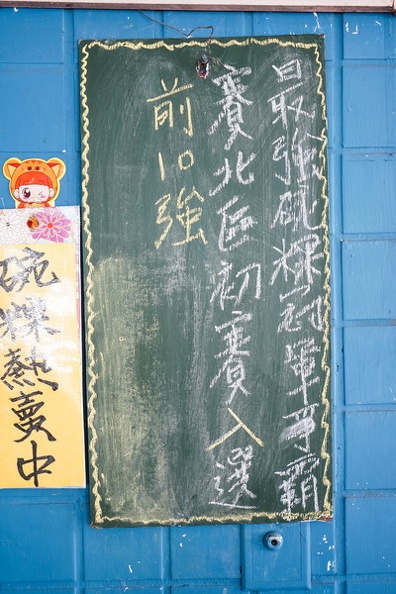 最強碗粿冠軍爭霸
賽北區初賽入選
前10強
碗粿熱賣中